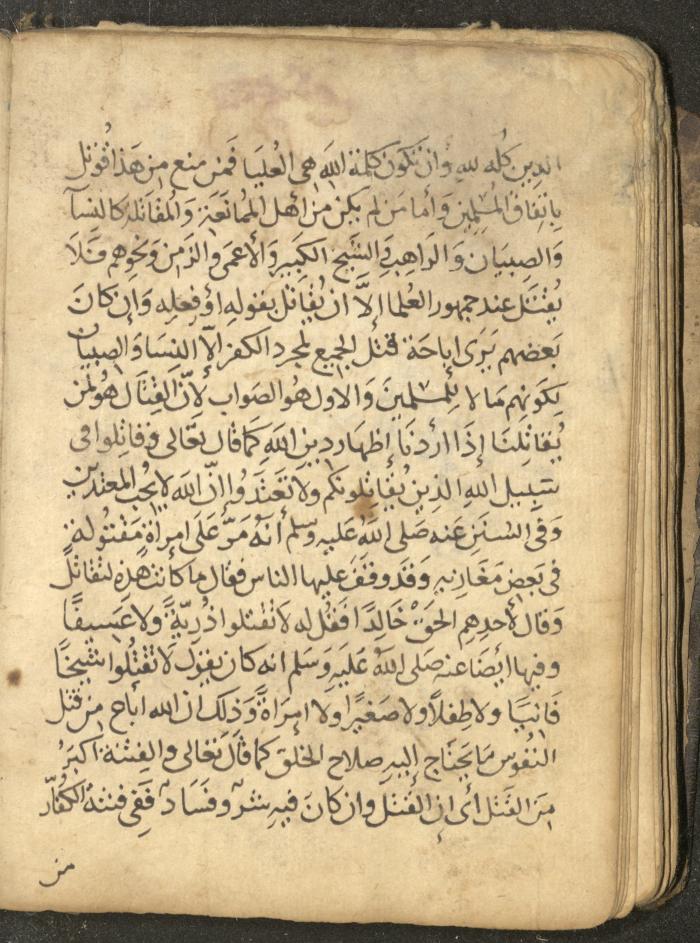 الدين كله لله وان تكون كلمة الله هي العليا فمن منع من هذا قوتل
باتفاق المسلمين وأما من لم يكن من أهل الممانعة والمقاتلة كالنسآ
والصبيان والراهب والشيخ الكبير والأعمى والزمن ونحوهم فلا
يقتل عند جمهور العلما إلا ان يقاتل بقوله او فعله وإن كان
بعضهم يرى اباحة قتل الجميع لمجرد الكفر إلا النسا والصبيان
لكونهم مالا للمسلمين والاول هو الصواب لأن القتال هو لمن
يقاتلنا إذا أردنا إظهار دين الله كما قال تعالى وقاتلوا في
سبيل الله الذين يقاتلونكم ولا تعتدوا إن الله لا يحب المعتدين
وفي السنن عنه صلى الله عليه وسلم أنه مر على امراة مقتولة
في بعض مغازيه وقد وقف عليها الناس فقال ما كانت هذه لتقاتل
وقال لأحدهم الحق خالدا فقل له لا تقتلوا ذرية ولا عسيفا
وفيها ايضا عنه صلى الله عليه وسلم انه كان يقول لا تقتلوا شيخا
فانيا ولا طفلا ولا صغيرا ولا امراة وذلك ان الله أباح من قتل
النفوس ما يحتاج إليه صلاح الخلق كما قال تعالى والفتنة اكبر
من القتل أي إن القتل وان كان فيه شر وفساد ففي فتنة الكفار
من